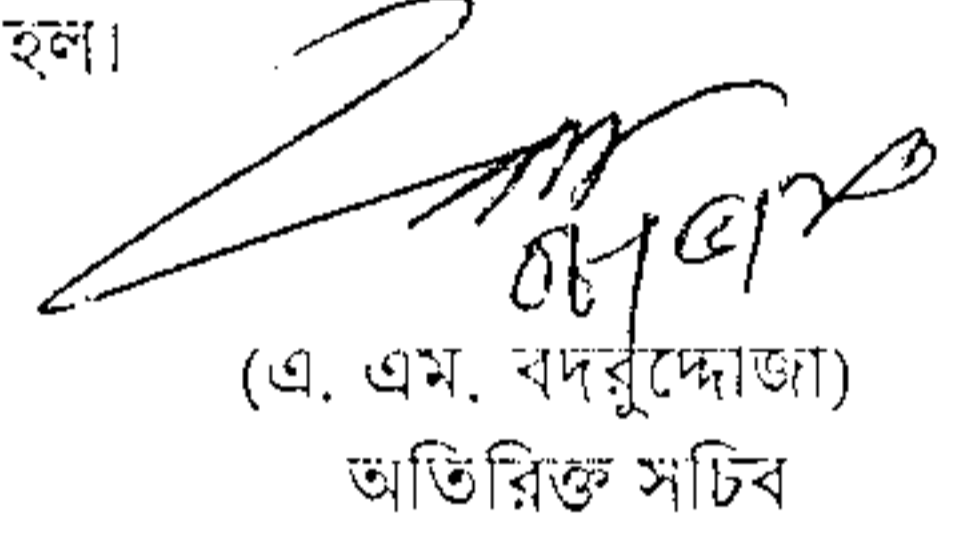 হল।
(এ. এম. বদরুদ্দোজা)
অতিরিক্ত সচিব